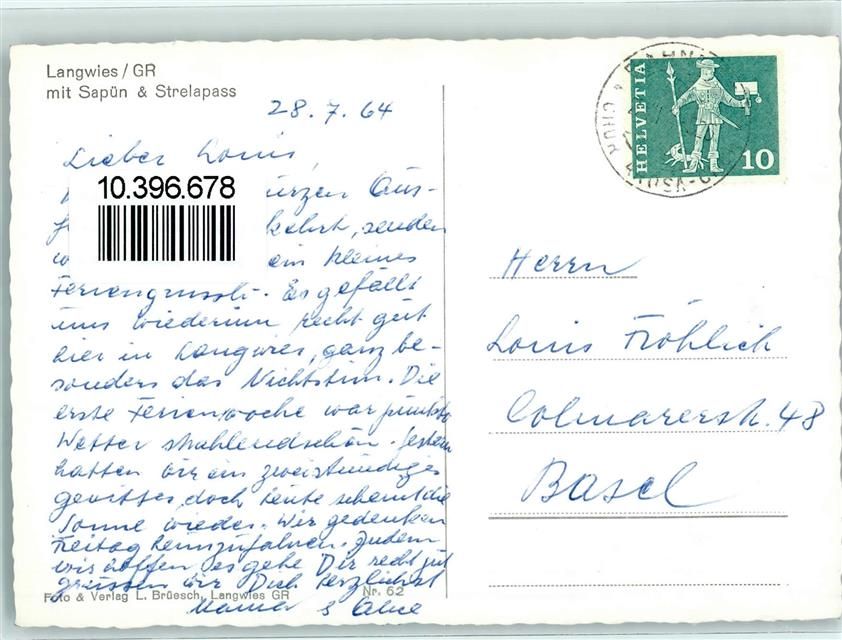 Langwies / GR
mit Sapün & Strelapass
28. 7. 64
Lieber Louis,
10.396.678
kurzen Aus-
kehrt, senden
ein kleines
Feriengrussli. Es gefällt
uns wiederum recht gut
hier in Langwies, ganz be-
sonders das Nichtstun. Die
erste Ferienwoche war punkto
Wetter strahlendschön. Gestern
hatten wir ein zweistündiges
Gewitter, doch heute scheint die
Sonne wieder. Wir gedenken
Freitag heimzufahren. Zudem
wir hoffen, es gehe Dir recht gut
grüssen wir Dich herzlichst
Mama &
Foto & Verlag L. Brüesch, Langwies GR
Nr. 62
HELVETIA
10
CHUR
Herrn
Louis Fröhlich
Colmarerstr. 48
Basel